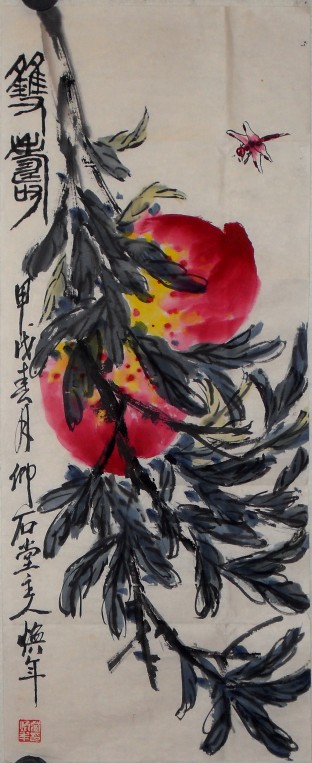 雙壽
甲戌春月仰石堂主人煥年